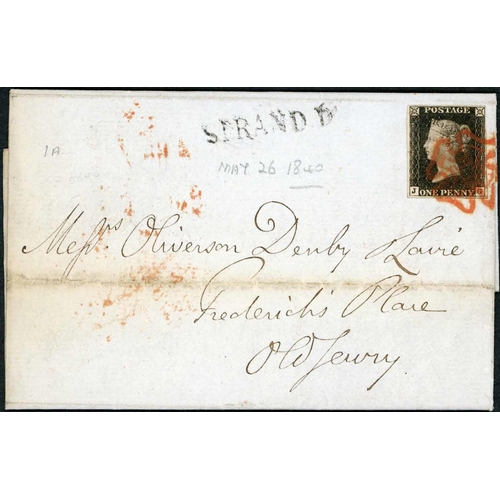 STRAND
POSTAGE
1A
MAY 26 1840
J
ONE PENNY
Messrs Oliverson Denby & Lavie
Frederick's Place
Old Jewry